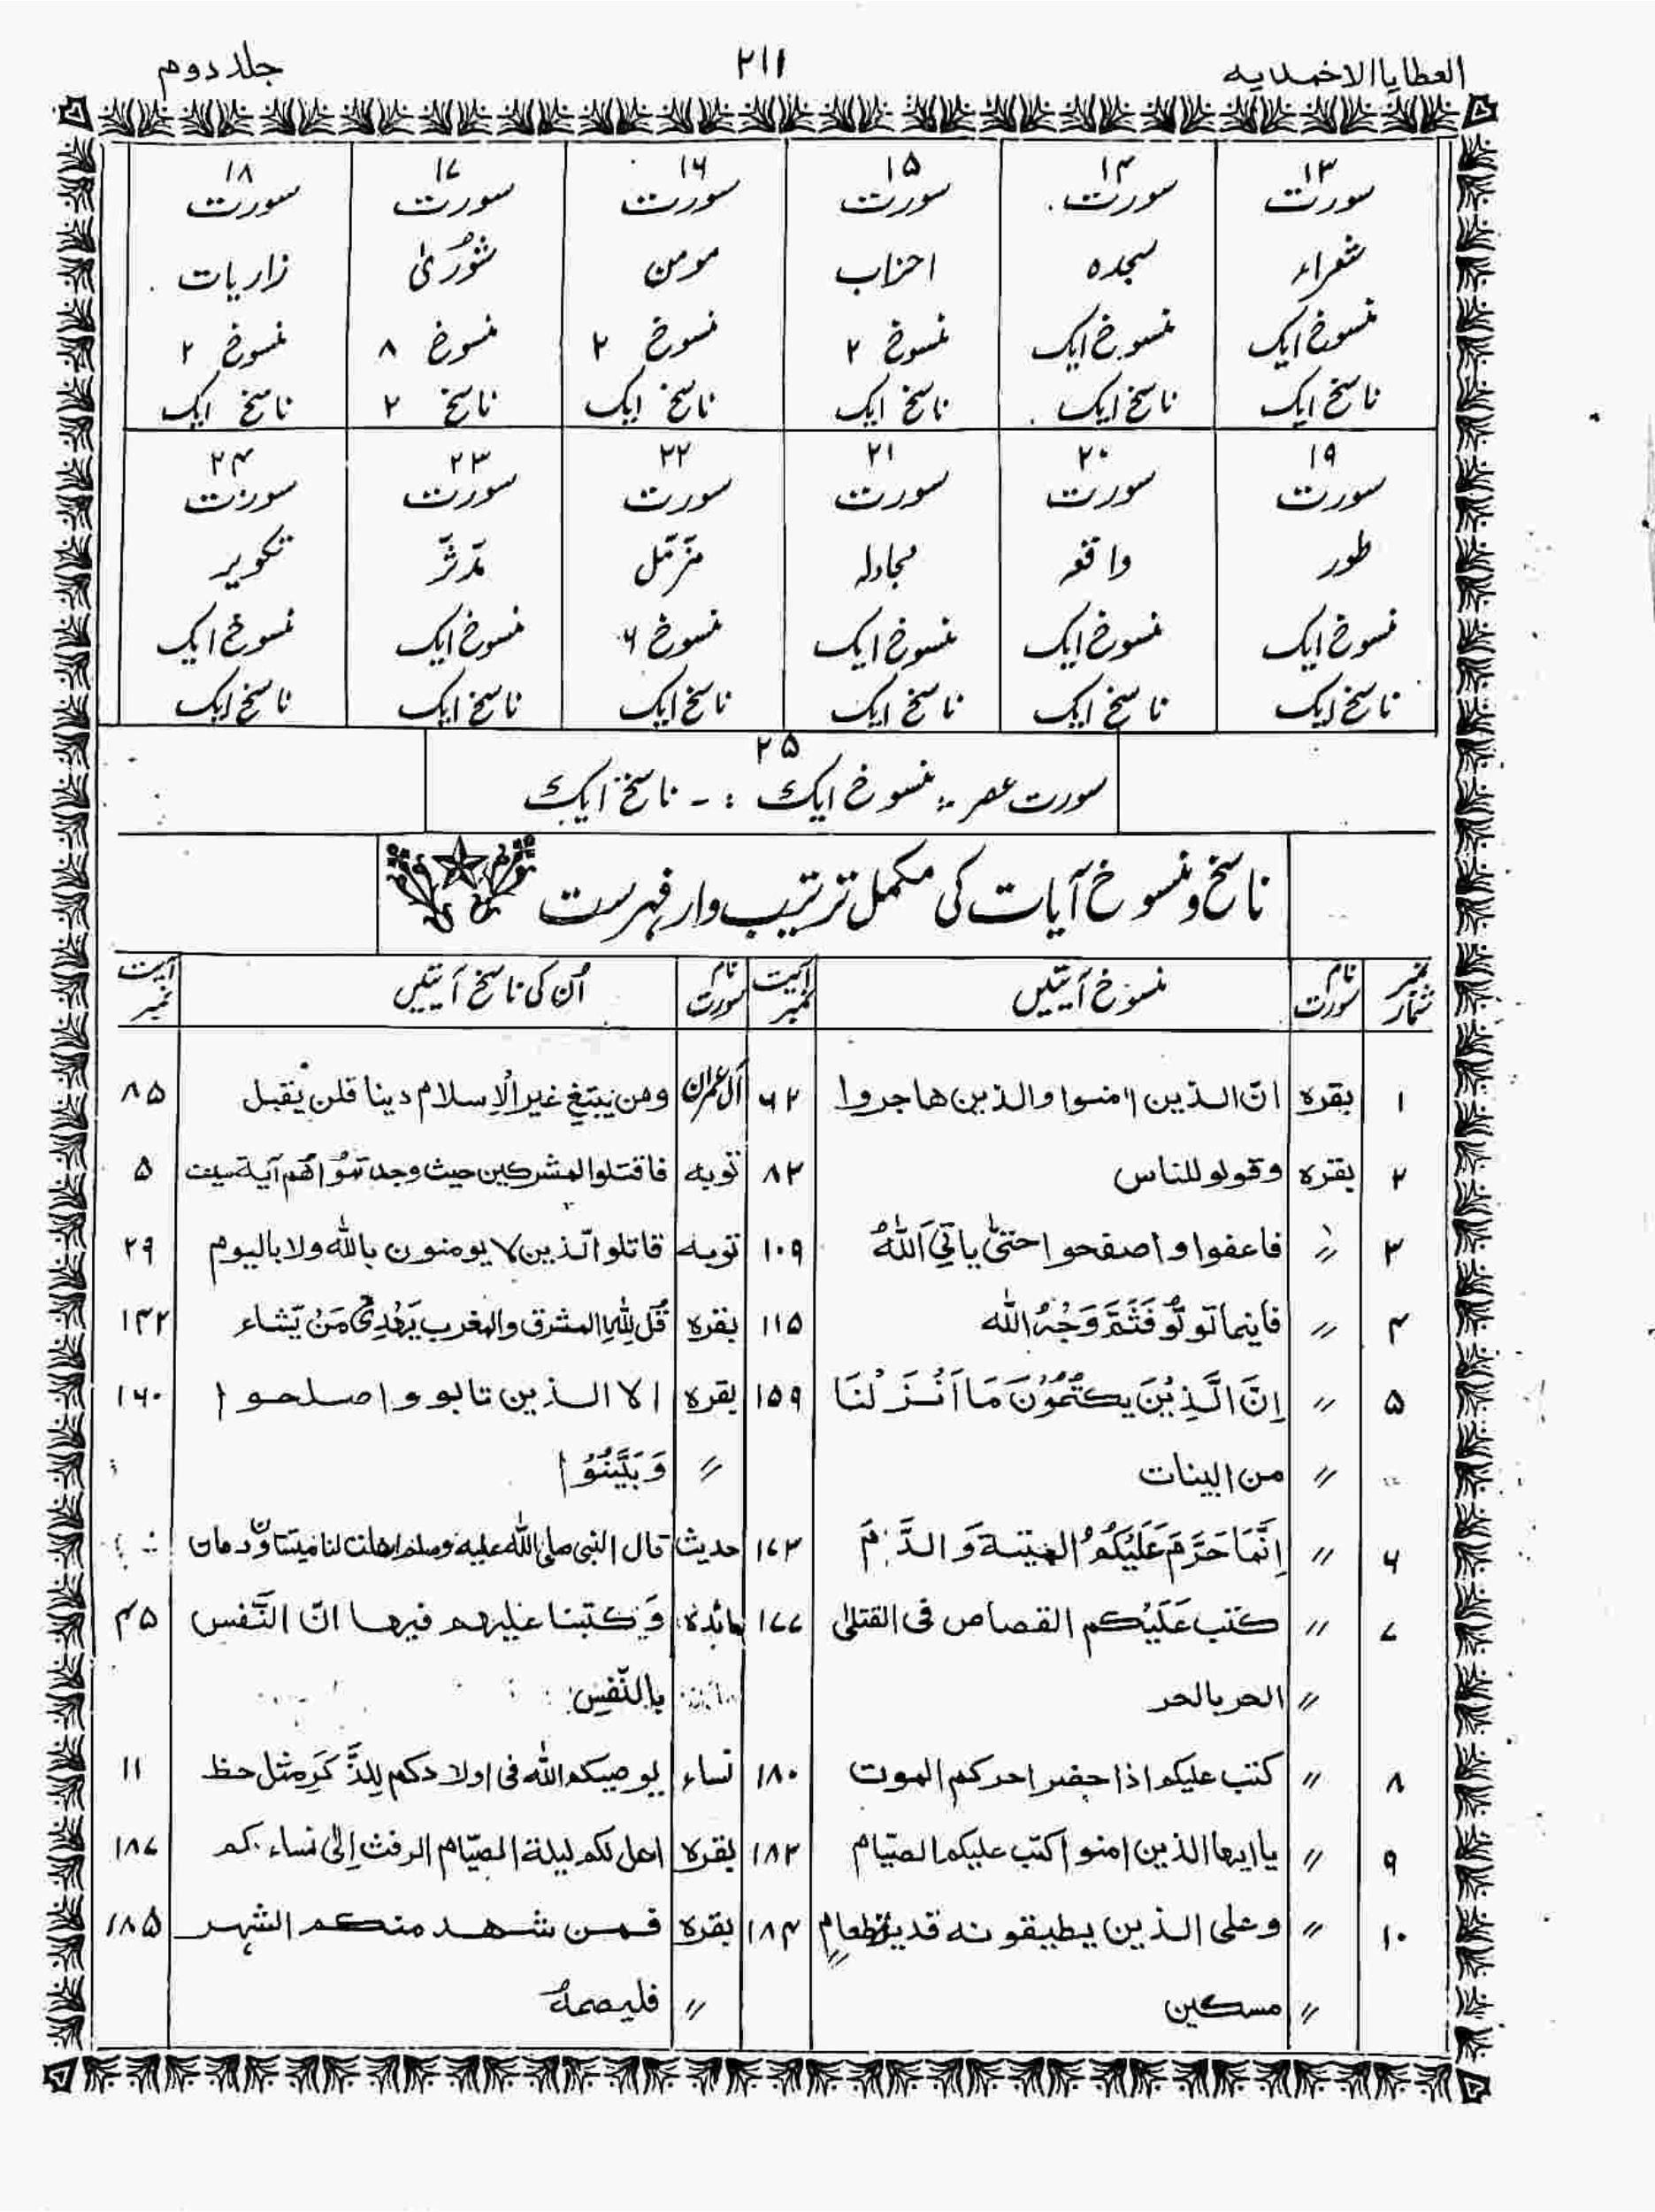 العطایا الاحمدیہ ۲۱۱ جلد دوم
۱۳ ۱۴ ۱۵ ۱۶ ۱۷ ۱۸
سورت سورت سورت سورت سورت سورت
شعراء سجدہ احزاب مومن شوُریٰ زاریات
منسوخ ایک منسوخ ایک منسوخ ۲ منسوخ ۲ منسوخ ۸ منسوخ ۲
ناسخ ایک ناسخ ایک ناسخ ایک ناسخ ایک ناسخ ۲ ناسخ ایک
۱۹ ۲۰ ۲۱ ۲۲ ۲۳ ۲۴
سورت سورت سورت سورت سورت سورت
طور واقعہ مجادلہ مزّمّل مدّثّر تکویر
منسوخ ایک منسوخ ایک منسوخ ایک منسوخ ۶ منسوخ ایک منسوخ ایک
ناسخ ایک ناسخ ایک ناسخ ایک ناسخ ایک ناسخ ایک ناسخ ایک
۲۵
سورت عصر :- منسوخ ایک :- ناسخ ایک
ناسخ و منسوخ آیات کی مکمل ترتیب وار فہرست
نمبر شمار نام سورت منسوخ آیتیں آیت نمبر نام سورت اُن کی ناسخ آیتیں آیت نمبر
۱ بقرہ انّ الذین اٰمنوا والذین هاجروا ۶۲ آل عمران ومن یبتغ غیر الْاِسلام دینا فلن یقبل ۸۵
۲ بقرہ وقولو للناس ۸۳ توبه فاقتلوا المشرکین حیث وجدتموُاهُم آیة سیف ۵
۳ 〃 فاعفوا واصفحوا حتیّٰ یاتِیَ اللّٰهُ ۱۰۹ توبه قاتلوا الّذین لا یومنون باللّٰه ولا بالیوم ۲۹
۴ 〃 فاینما تولّوُ فَثَمَّ وَجْهُ اللّٰه ۱۱۵ بقره قُل لِلّٰهِ المشرق والمغرب یَهْدِیْ مَنْ یّشاء ۱۴۲
۵ 〃 اِنَّ الَّذِیْنَ یکتُمُوْنَ مَا اَنْزَلْنَا ۱۵۹ بقره الا الذین تابو واصلحوا ۱۶۰
〃 من البینات 〃 وَبَیَّنُوْا
۶ 〃 اِنَّمَا حَرَّمَ عَلَیْکُمُ المیتة وَ الدَّمَ ۱۷۳ حدیث قال النبی صلی اللّٰه علیه وسلم احلت لنا میتتان ودمان
۷ 〃 کتب عَلَیْکم القصاص فی القتلیٰ ۱۷۷ مائدہ وَکتبنا علیهم فیها انّ النَّفس ۴۵
〃 الحر بالحر بِالنّفسِ
۸ 〃 کتب علیکم اذا حضر احدکم الموت ۱۸۰ نساء یوصیکم اللّٰه فی اولادکم لِلذَّکَرِ مثل حظ ۱۱
۹ 〃 یا ایها الذین امنو اکتب علیکم الصیّام ۱۸۳ بقرہ احل لکم لیلة الصیّام الرفث اِلیٰ نساءکم ۱۸۷
۱۰ 〃 وعلی الذین یطیقونه فدیة طعامِ ۱۸۴ بقرہ فمن شهد منکم الشهر ۱۸۵
〃 مسکین 〃 فلیصمهُ